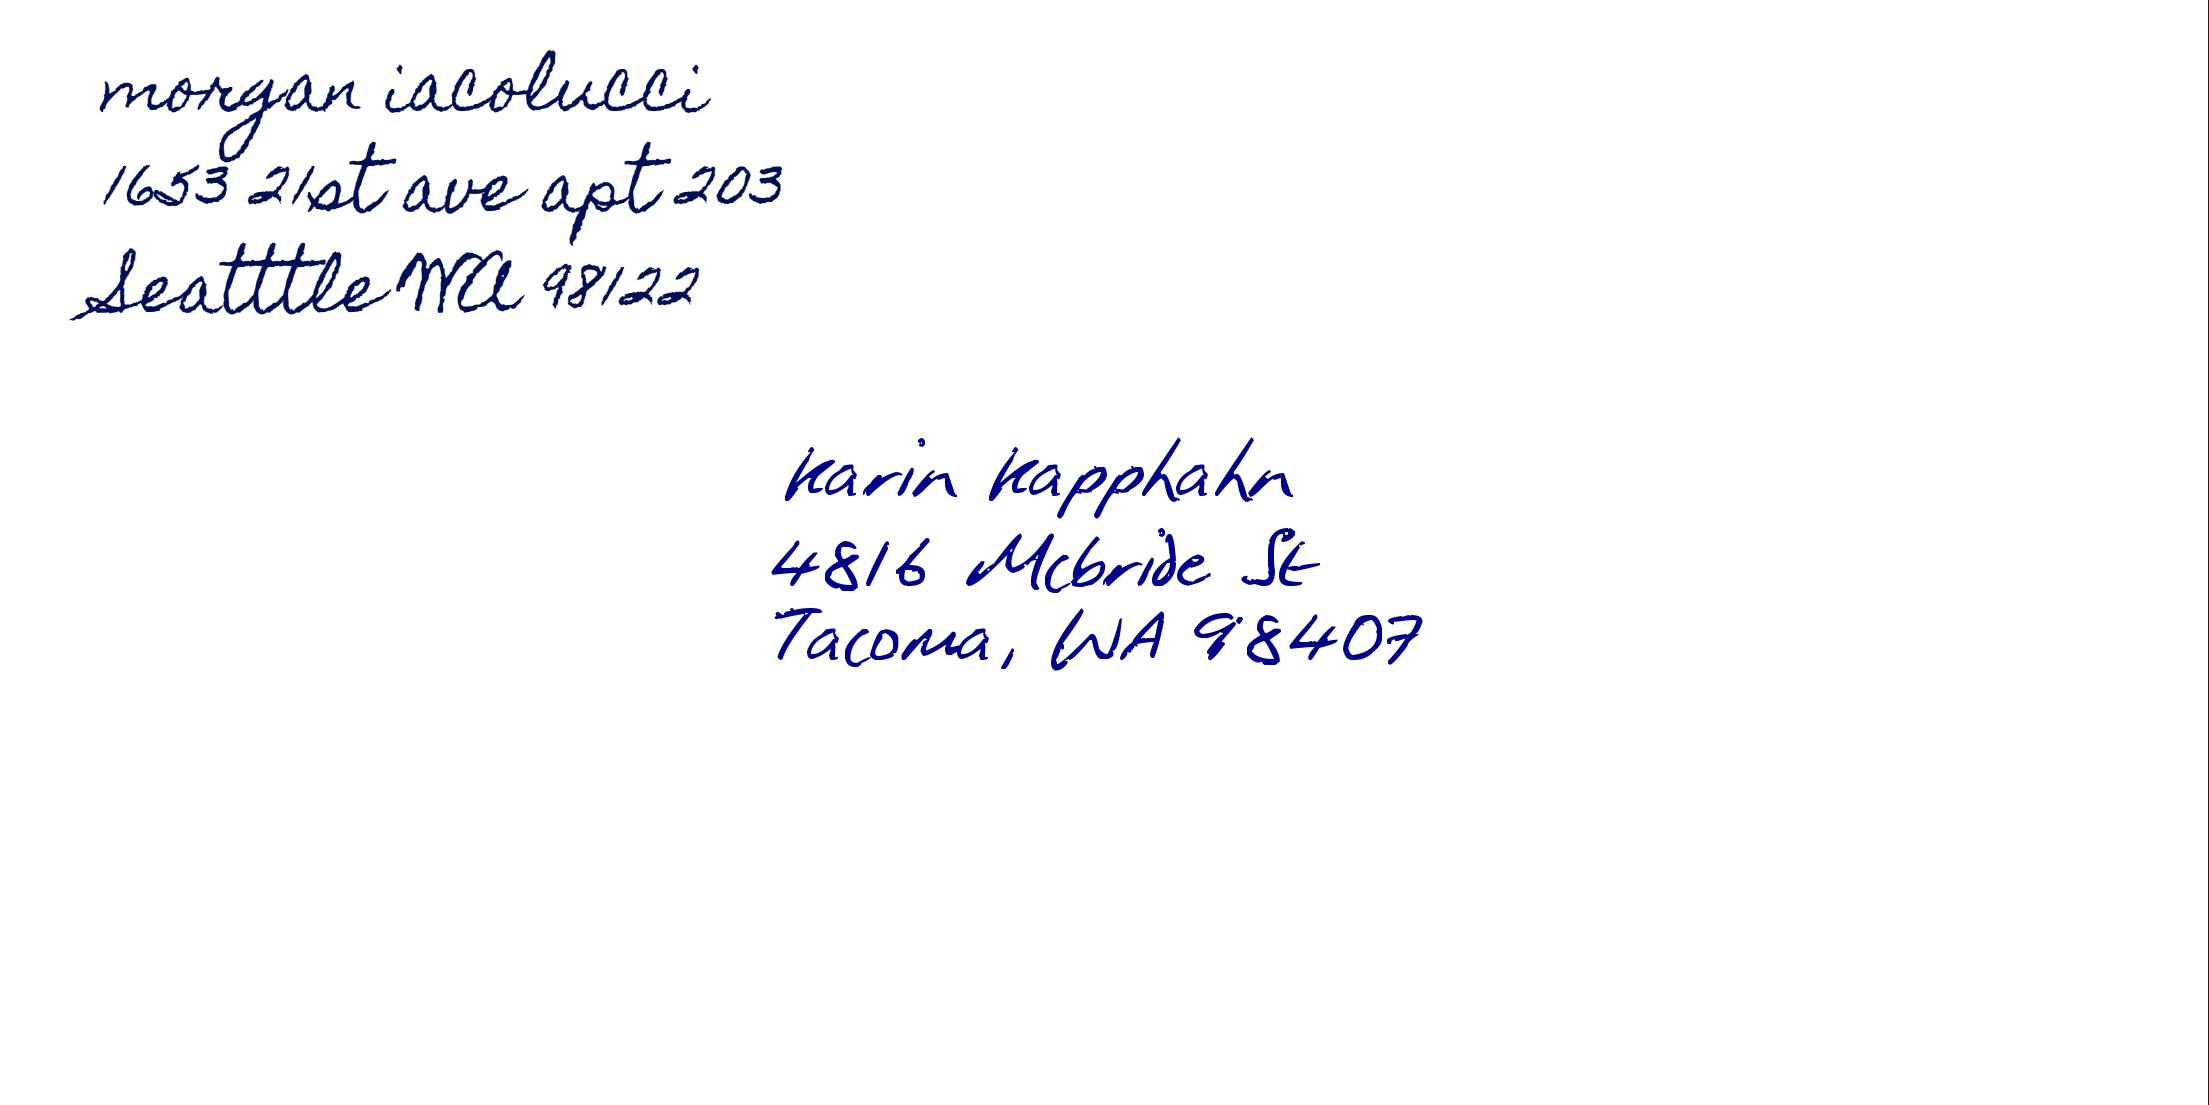 morgan iacolucci
1653 21st ave apt 203
Seatttle WA 98122
Karin Kapphahn
4816 Mcbride St
Tacoma, WA 98407